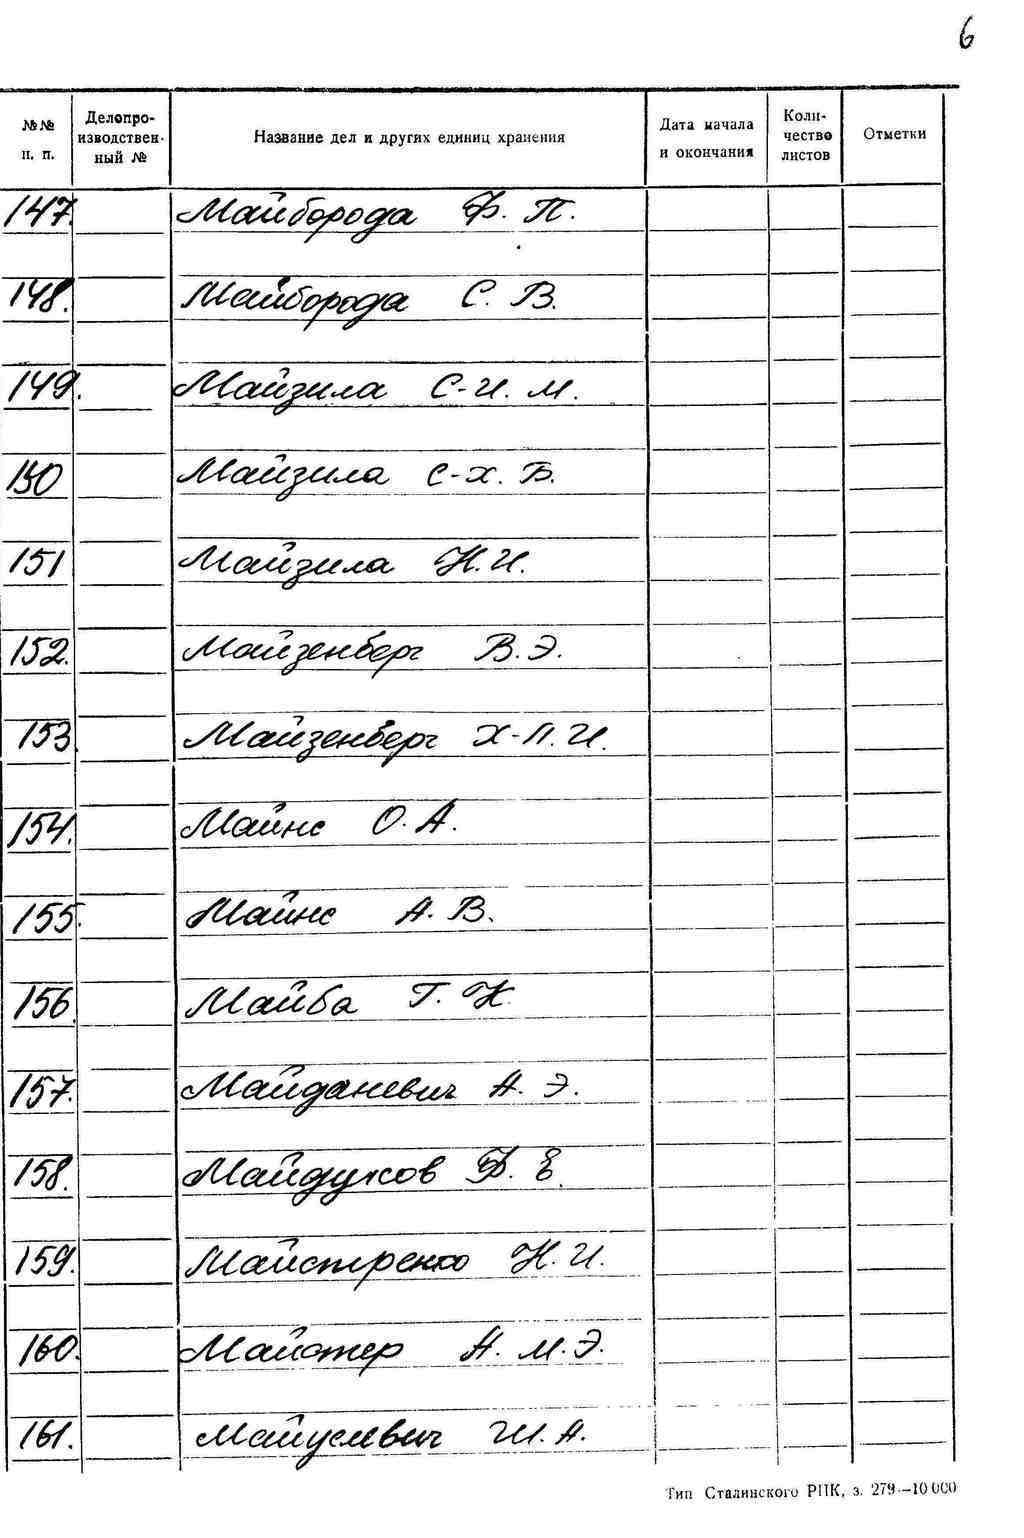 6
№№ п. п. Делопро-изводствен-ный № Название дел и других единиц хранения Дата начала и окончания Коли-чество листов Отметки
147. Майборода Ф. П.
148. Майборода С. В.
149. Майзила С-И. М.
150 Майзила С-Х. Б.
151 Майзила Н. И.
152. Майзенберг В. Э.
153. Майзенберг Х-П. И.
154. Майнс О. А.
155. Майнс А. В.
156. Майба Г. К.
157. Майданевич А. Э.
158. Майдуков Ф. Е.
159. Майстренко Н. И.
160. Майстер А. М. Э.
161. Майуслевич Ш. А.
Тип Сталинского РПК, з. 279—10 000